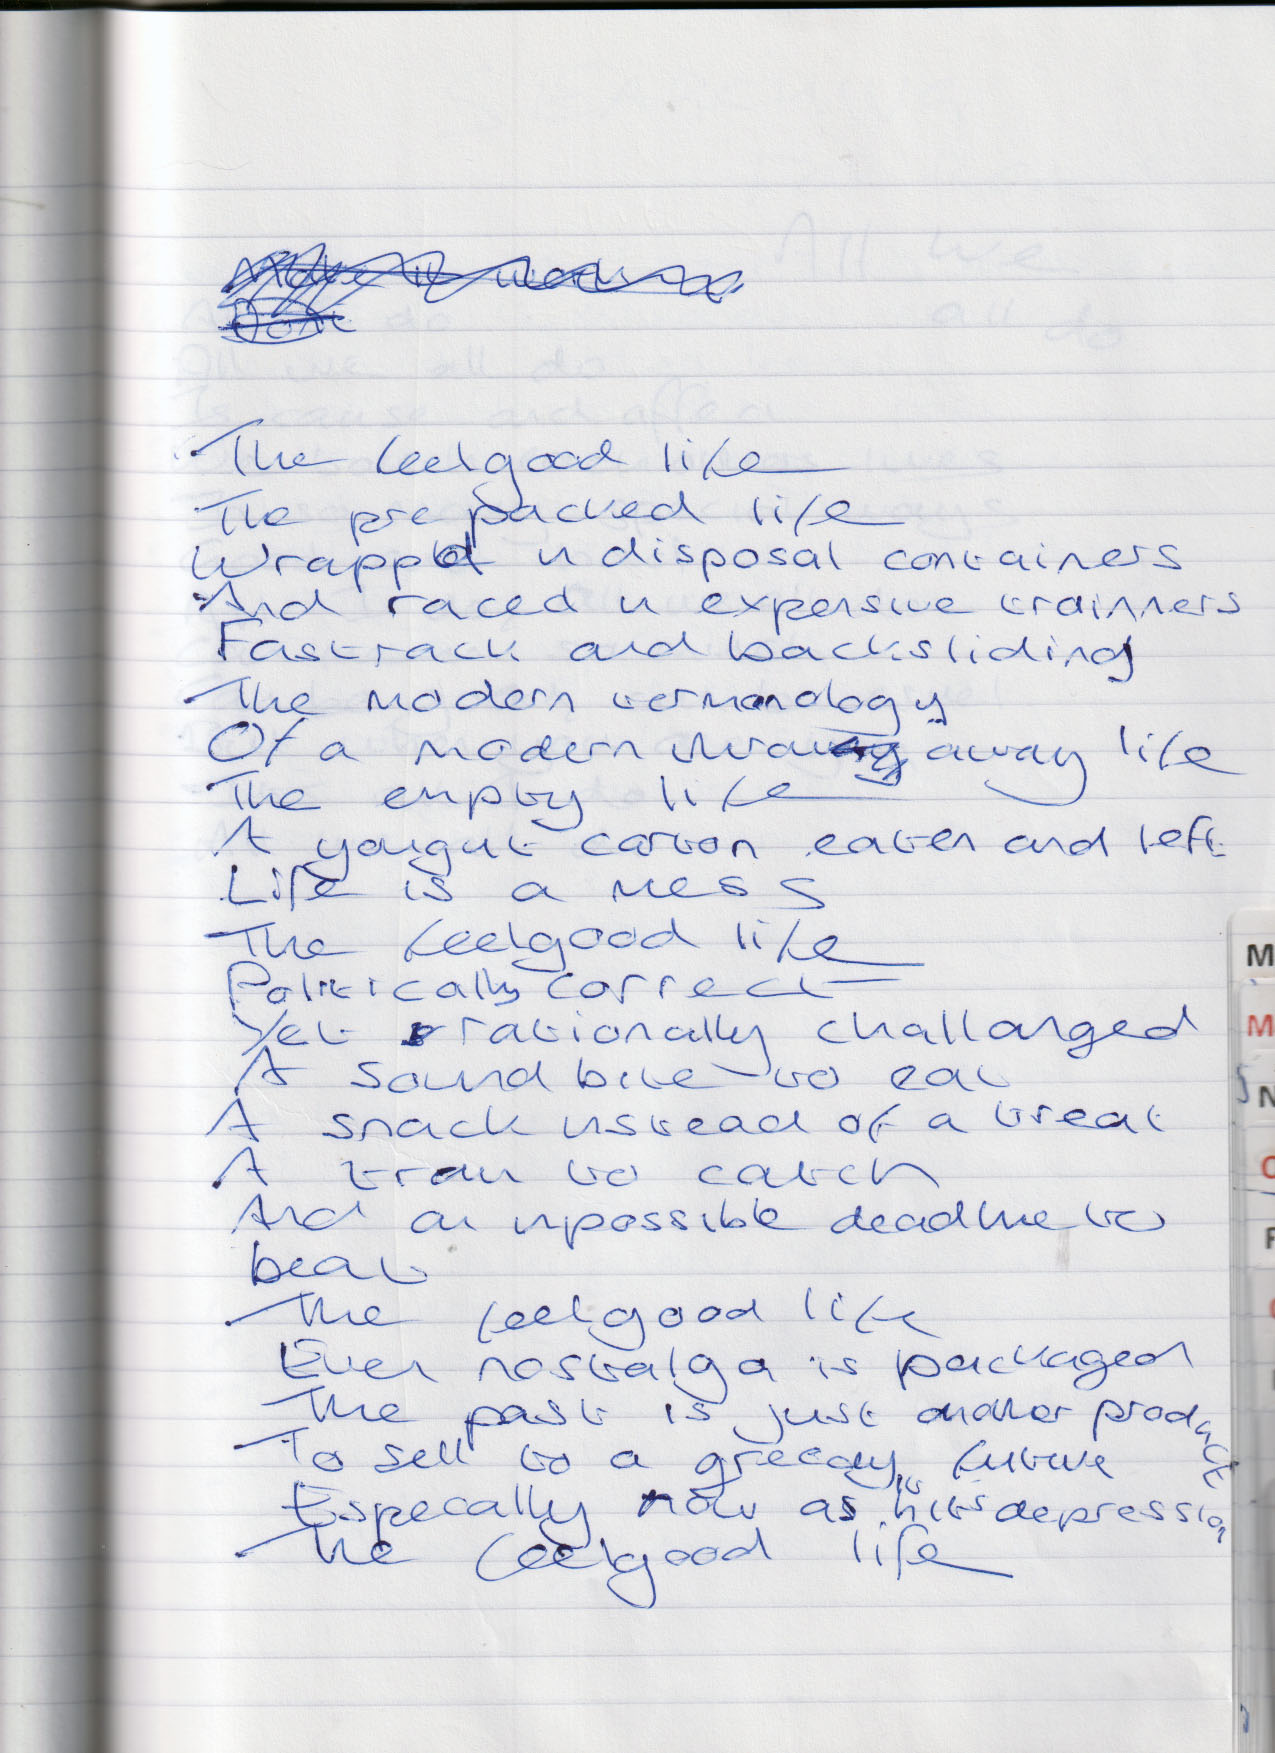 The feelgood life
The prepacked life
Wrapped in disposal containers
And raced in expensive trainners
Fastrack and backsliding
The modern termanology
Of a modern throw away life
The empty life
A yougut carton eaten and left
Life is a mess
The feelgood life
Politically correct
Yet rationally challanged
A soundbite to eat
A snack instead of a treat
A train to catch
And an impossible deadline to
beat
The feelgood life
Even nostalga is packaged
The past is just another product
To sell to a greedy future
Especally now as it hits depression
The feelgood life
M
M
N